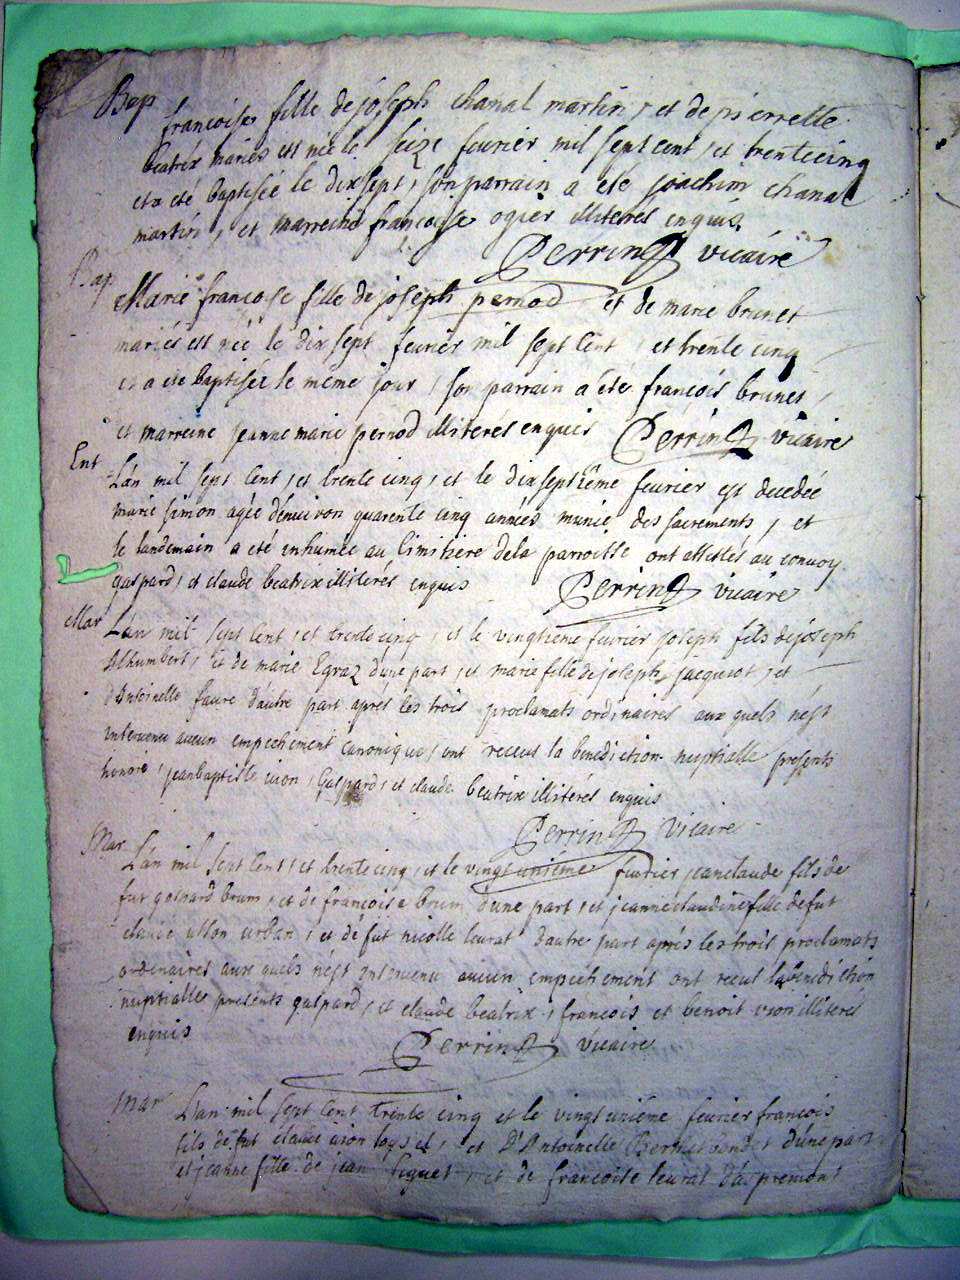 Bap
francoise fille de joseph chanal martin, et de pierrette
beatrix mariés est née le seize fevrier mil sept cent, et trentecinq
et a été baptisée le dixsept, son parrain a été joachim chanal
martin, et marreine francoise ogier illiterés enquis
Perrin vicaire
Bap
Marie francoise fille de joseph pernod et de marie brunet
mariés est née le dix sept fevrier mil sept cent, et trente cinq
et a été baptisée le même jour, son parrain a été francois brunet,
et marreine jeanne marie pernod illiterés enquis Perrin vicaire
Ent
L'an mil sept cent, et trente cinq, et le dixseptième fevrier est decedée
marie simon agée d'environ quarente cinq années munie des sacrements, et
le landemain a été inhumée au cimitière de la parroisse ont assistés au convoy
gaspard, et claude beatrix illiterés enquis Perrin vicaire
Mar
L'an mil sept cent, et trente cinq, et le vingtième fevrier joseph fils de joseph
Alhumbert, et de marie Egraz d'une part, et marie fille de joseph jacquiot, et
d'Antoinette favre d'autre part après les trois proclamats ordinaires aux quels n'est
intervenu aucun empechement canonique, ont receus la benediction nuptialle presents
honoré, jean baptiste uion, Gaspard, et claude beatrix illiterés enquis
Perrin Vicaire
Mar
L'an mil sept cent, et trente cinq, et le vingt unième fevrier jean claude fils de
fut gaspard brum, et de francoise brum d'une part, et jeanne claudine fille de fut
claude urban, et de fut nicolle leurat d'autre part après les trois proclamats
ordinaires aux quels n'est intervenu aucun empechement ont receus la benediction
nuptialle presents gaspard, et claude beatrix, francois et benoit uion illiteres
enquis
Perrin vicaire
mar
L'an mil sept cent trente cinq et le vingt unième fevrier francois
fils de fut claude uion et d'Antoinette d'une part
et jeanne fille de jean et de francoise leurat d'apremont